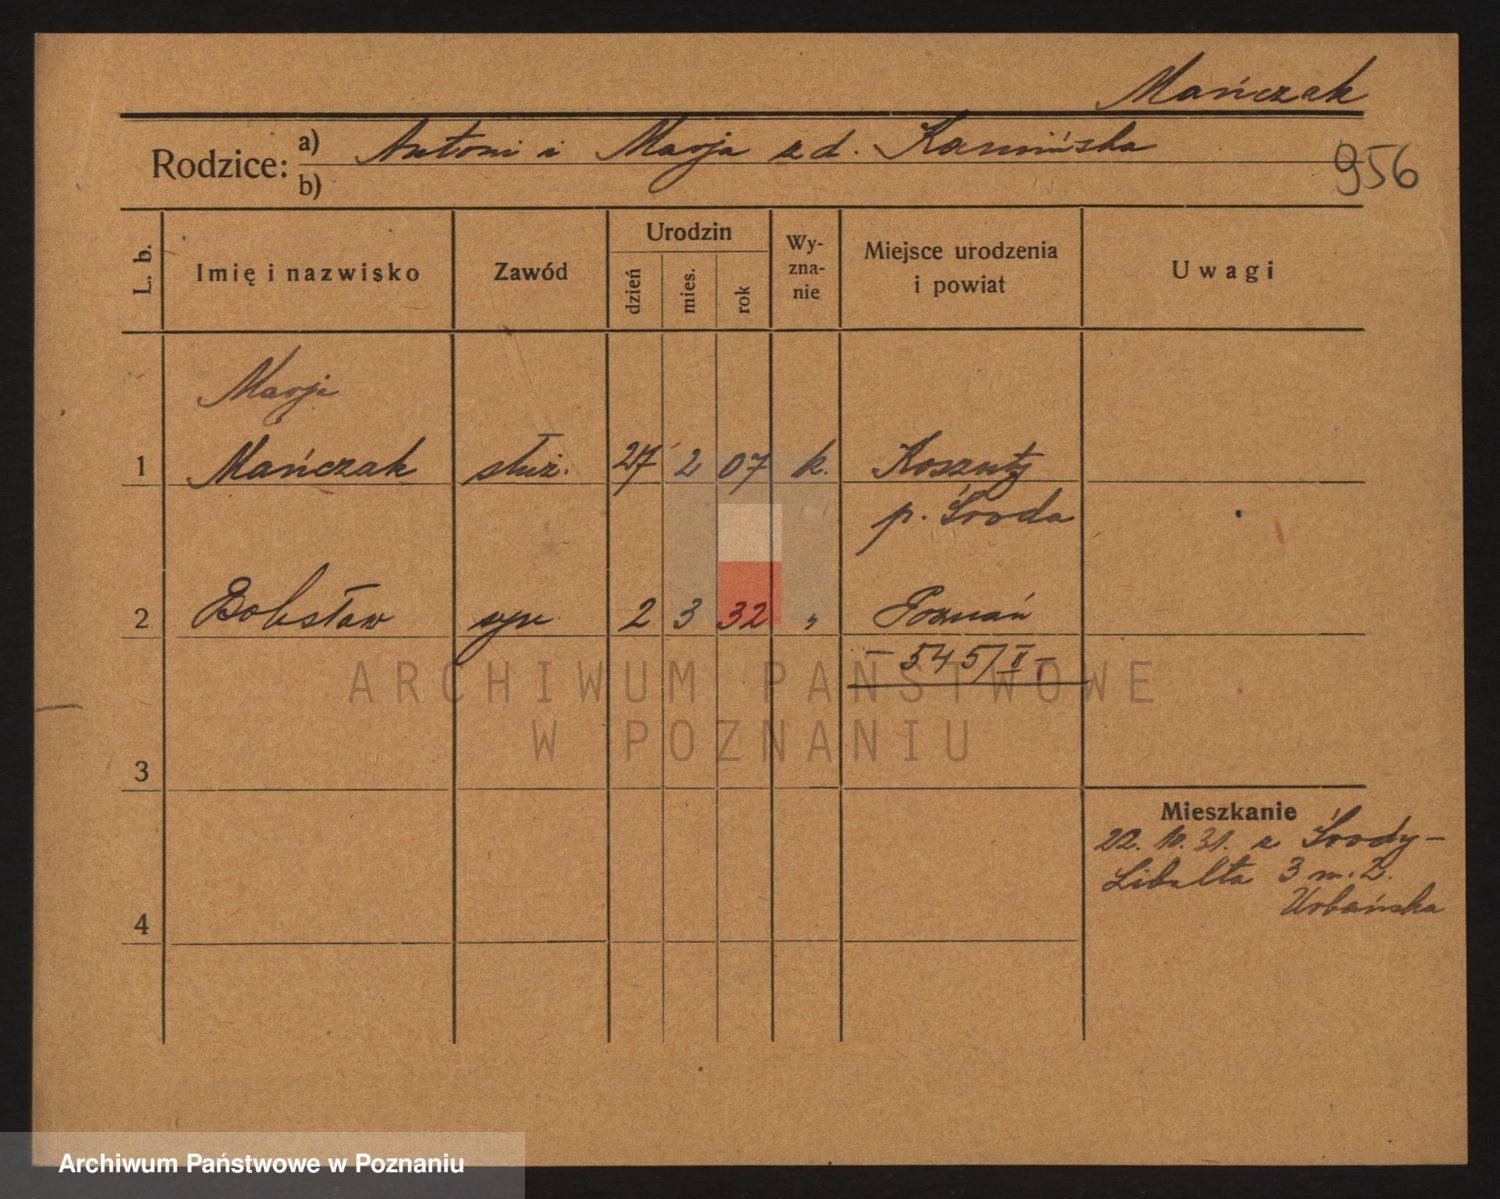 Mańczak
Rodzice: a) Antoni i Marja z d. Kamińska
b)
956
L. b.
Imię i nazwisko
Zawód
Urodzin
dzień
mies.
rok
Wy-
zna-
nie
Miejsce urodzenia
i powiat
Uwagi
Marja
1 Mańczak służ. 27 2 07 k. Koszuty
p. Środa
2 Bolesław syn 2 3 32 " Poznań
– 545/II –
ARCHIWUM PAŃSTWOWE
W POZNANIU
3
Mieszkanie
22. 10. 31. z Środy –
Libelta 3 m. 2.
Urbańska
4
Archiwum Państwowe w Poznaniu